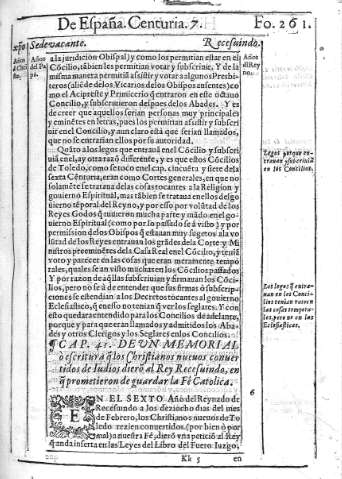 De España. Centuria. 7. Fo. 261.
xpõ Sedevacante. Recesuindo.
Años d Christo.
Años del Papa.
Años del Rey no.
a la jurisdicion Obispal) y como los permitian estar en el
Cõcilio, tãbien les permitian votar y subscriuir. Y de la
misma manera permitiã assistir y votar a algunos Presbi-
teros (allẽde de los Vicarios de los Obispos ausentes) co-
mo el Acipreste y Primiclerio q̃ entraron en este octauo
Concilio, y subscriuieron despues de los Abades. Y es
de creer que aquellos serian personas muy principales
y eminẽtes en letras, pues los permitian assistir y subscri-
uir en el Concilio, y aun claro está que seriã llamados,
que no se entrariã ellos por su autoridad.
Quãto a los legos que entrauã en el Cõcilio y subscri-
uiã en el, ay otra razõ differente, y es que estos Cõcilios
de Toledo, como se toco en el cap. cincuẽta y siete de la
sexta Cẽturia, erãn como Cortes generales, en que no
solamẽte se trataua de las cosas tocantes a la Religion y
gouierno Espiritual, mas tãbien se trataua en ellos del go-
uierno tẽporal del Reyno, y por esso por volũtad de los
Reyes Godos q̃ quisieron mucha parte y mãdo en el go-
uierno Espiritual (como por lo passado se á visto) y por
permission de los Obispos q̃ estauan muy sugetos a la vo-
lũtad de los Reyes entrauan los grãdes de la Corte y Mi-
nistros preeminẽtes de la Casa Real en el Cõcilio, y teniã
voto y parecer en las cosas que eran meramente tempo-
rales, quales se an visto muchas en los Cõcilios passados
Y por razon de aq̃llas subscriuian y firmauan los Cõci-
lios, pero no se á de entender que sus firmas ò subscripcio-
nes se estendian a los Decretos tocantes al gouierno
Eclesiastico, q̃ en esso no tenian q̃ ver los seglares. Y con
esto quedara entendido para los Concilios de adelante,
porque y para que eran llamados y admitidos los Aba-
des y otros Clerigos y los Seglares en los Concilios.
¶ CAP. 41. DE VN MEMORIAL
ò escritura q̃ los Christianos nueuos conuer-
tidos de Iudios dierõ al Rey Recesuindo, en
q̃ prometieron de guardar la Fé Catolica.
EN EL SEXTO Año del Reynado de
Recesuindo a los deziocho dias del mes
de Febrero, los Christianos nueuos de To-
ledo rezien conuertidos (por bien ò por
mal) a nuestra Fé, dierõ vna peticiõ al Rey
q̃ anda inserta en las Leyes del Libro del Fuero Iuzgo,
Kk 5 en
Legos porque entrauan
en los Concilios.
Los legos q̃ entrauan
en los Concilios
tenian voto en
las cosas temporales,
pero no en las
Eclesiasticas.
6